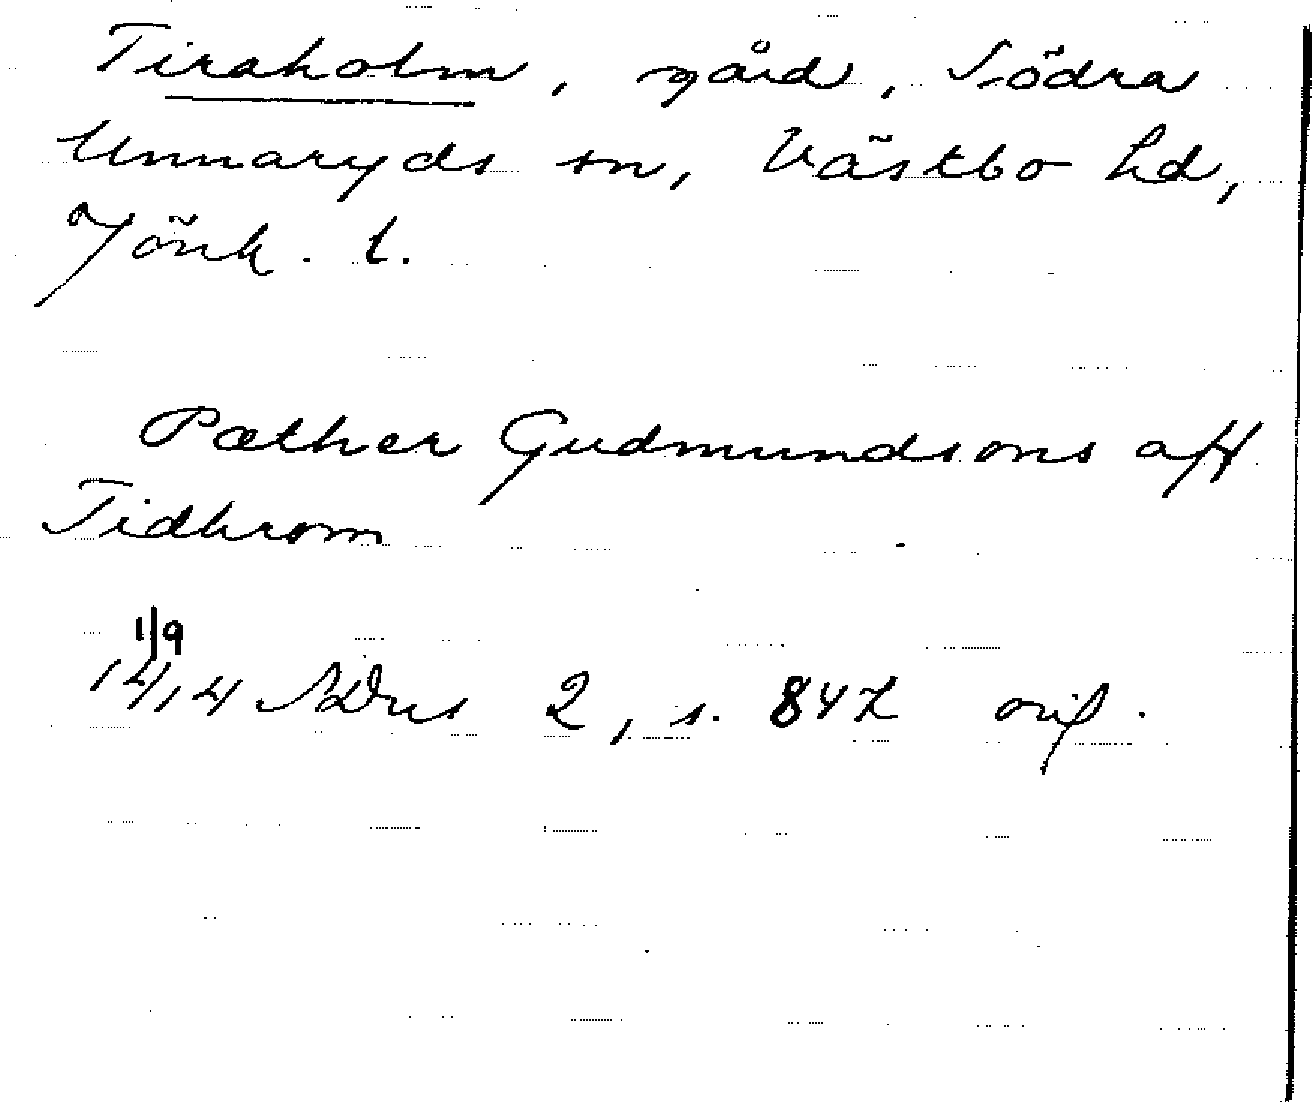 Tiraholm, gård, Södra
Unnaryds sn, Västbo hd,
Jönk. l.
Pæther Gudmundsons aff
Tidhrom
1/9
1414 SDns 2, s. 842 orig.